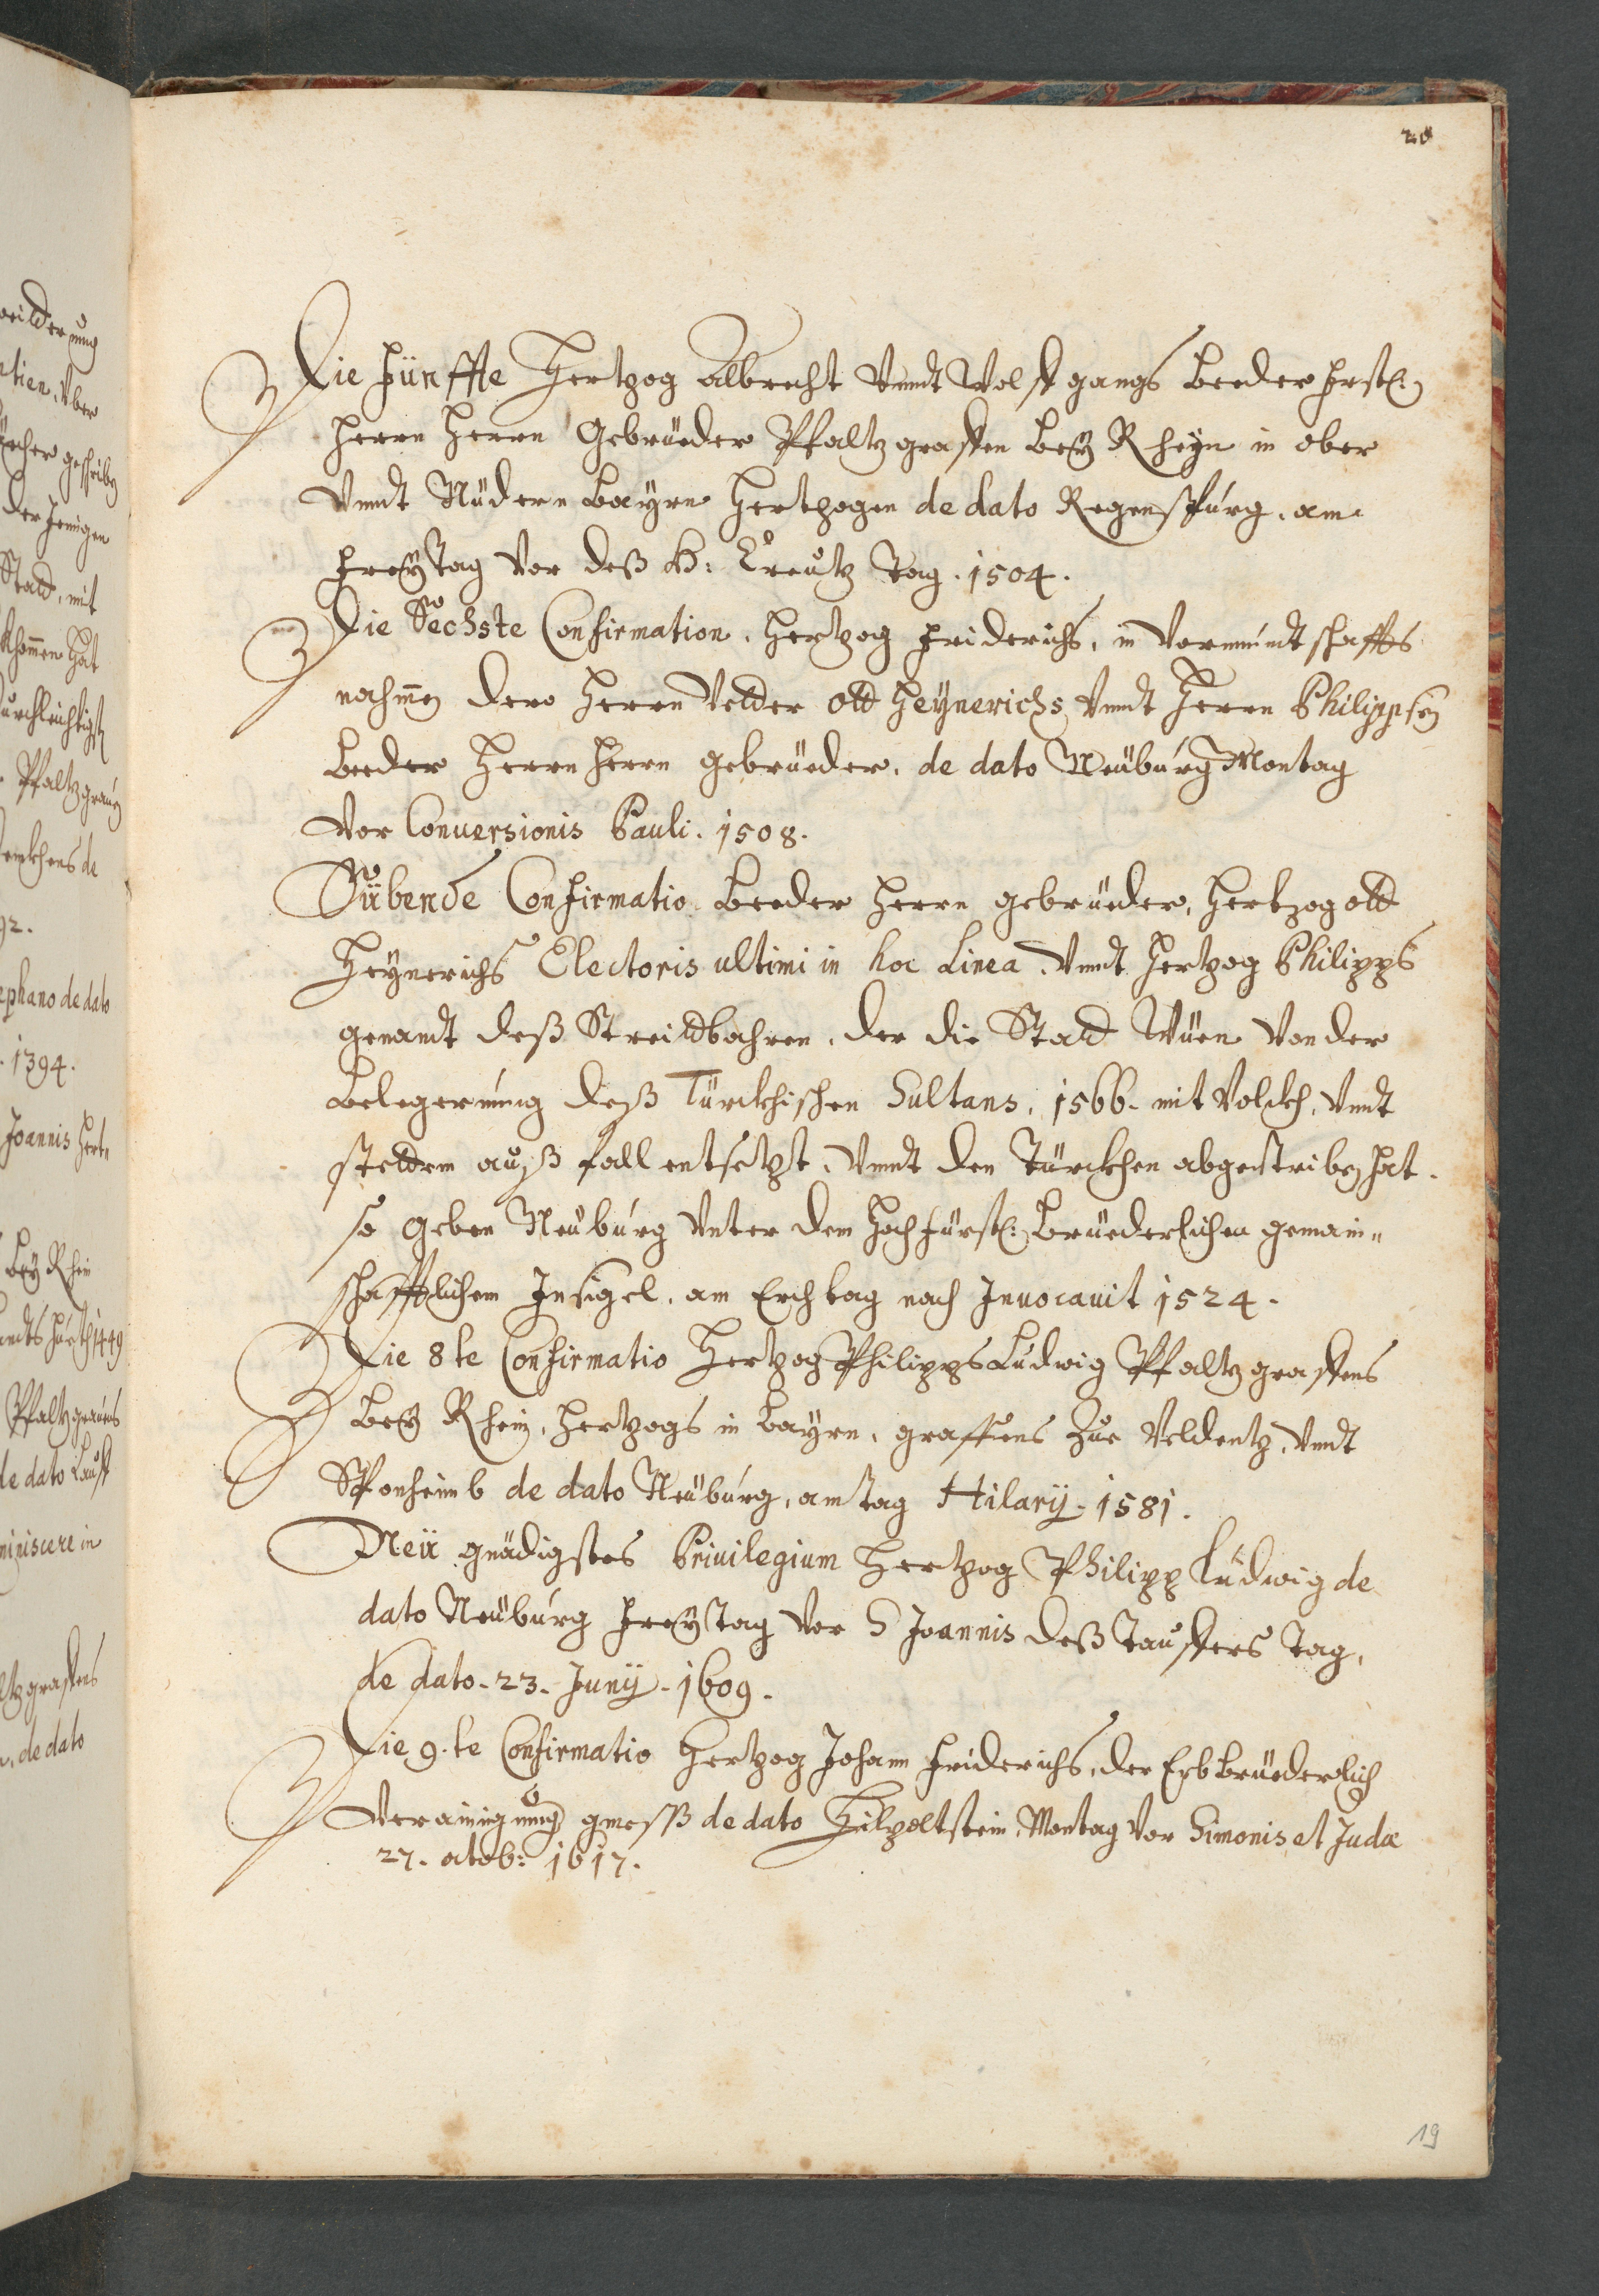 20
Die Fünffte Hertzog Albrecht Vnndt Wolffgangs Beeder Frstl:
Herrn Herrn Gebrüeder Pfaltzgraffen Beÿ Rheÿn in ober
Vnndt Nüdern Bayrn Hertzogen de dato Regenspurg, am
Freÿtag Vor deß H: Creutz Tag. 1504.
Die Sechste Confirmation, Hertzog Friderichs, in Vormundtschaffts
nahmen dero Herrn Vetter Ott Heÿnerichs Vnndt Herrn Philippsen
Beeder Herrn Herrn gebrüeder, de dato Neüburg Montag
Vor Conuersionis Pauli. 1508.
Sübende Confirmatio Beeder Herrn gebrüeder, Hertzog Ott
Heÿnerichs Electoris ultimi in hoc Linea, Vnndt Hertzog Philipps
genandt deß Streittbahren, der die Statt Wüen Von der
Belegerung deß Türckhischen Sultans, 1566. mit Volckh, Vnndt
stettem auß fall entsetzt, Vnndt den Türckhen abgetriben hat.
so geben Neüburg Vnter dem Hochfürstl: Brüederlichen gemain„
schafftlichem Insigel, am Erchtag nach Inuocauit 1524.
Die 8te Confirmatio Hertzog Philipps Ludwig Pfaltzgraffens
Beÿ Rhein, Hertzogs in Bayrn, graffens Zue Veldentz, Vnndt
Sponheimb de dato Neüburg, am tag Hilarÿ. 1581.
Neü gnädigstes Priuilegium Hertzog Philipp Ludwig de
dato Neüburg Freÿtag Vor S Joannis deß Tauffers Tag,
de dato. 23. Junÿ. 1609.
Die 9.te Confirmatio Hertzog Johann Friderichs, der Erbbrüederlich
Verainigung gmeß de dato Hilpoltstein, Montag Vor Simonis et Judæ
27. octob: 1617.
19